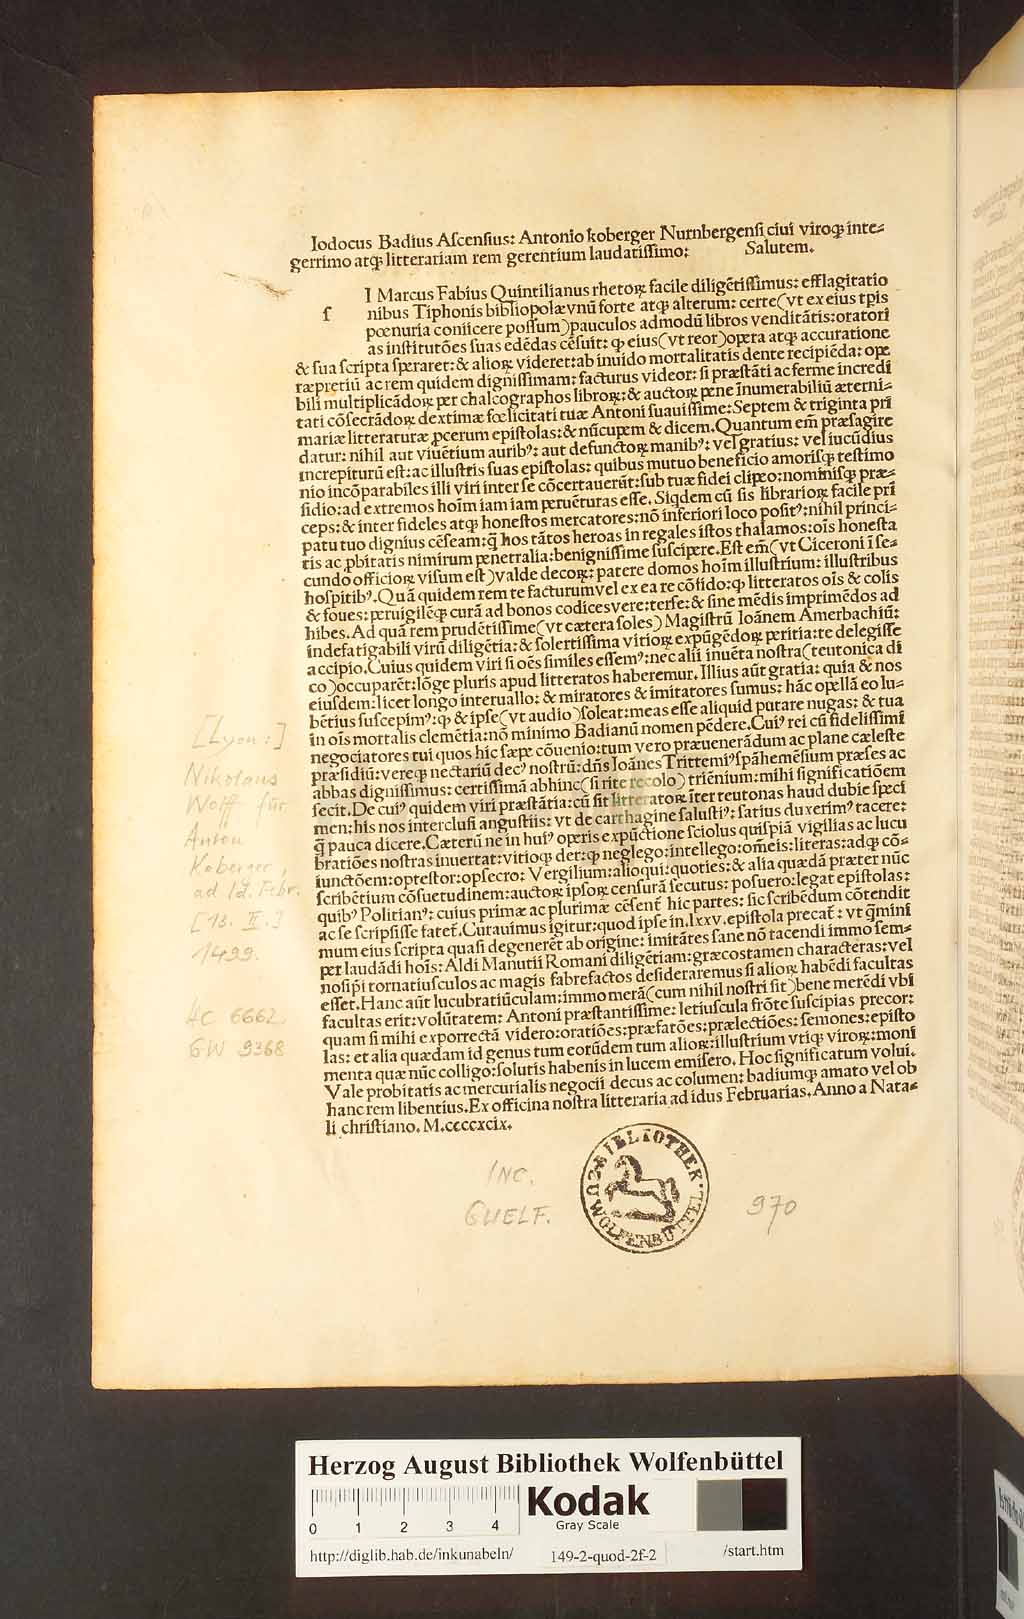 Iodocus Badius Ascensius: Antonio koberger Nurnbergensi ciui viroqꝫ inte-
gerrimo atqꝫ litterariam rem gerentium laudatissimo: Salutem.
ſ
I Marcus Fabius Quintilianus rhetoꝝ facile diligētissimus: efflagitatio
nibus Tiphonis bibliopolæ vnū forte atqꝫ alterum: certe (vt ex eius tp̄is
pœnuria coniicere possum) pauculos admodū libros venditātis: oratori
as institutōes suas edēdas cēsuit: ꝙ eius (vt reor) opera atqꝫ accuratione
& sua scripta speraret: & alioꝝ videret: ab inuido mortalitatis dente recipiēda: ope
ræpretiū ac rem quidem dignissimam: facturus videor: si præstāti ac ferme incredi
bili multiplicādoꝝ per chalcographos libroꝝ: & auctoꝝ pene īnumerabiliū æterni-
tati cōsecrādoꝝ dextimæ fœlicitati tuæ Antoni suauissime: Septem & triginta pri
mariæ litteraturæ ꝓcerum epistolas: & nūcupem & dicem. Quantum em̄ præsagire
datur: nihil aut viuētium auribꝰ: aut defunctoꝝ manibꝰ: vel gratius: vel iucūdius
increpiturū est: ac illustris suas epistolas: quibus mutuo beneficio amorisqꝫ testimo
nio incōparabiles illi viri inter se cōcertauerūt: sub tuæ fidei clipeo: nominisqꝫ præ-
sidio: ad extremos hoīm iam iam peruēturas esse. Siqdem cū sis librarioꝝ facile pri
ceps: & inter fideles atqꝫ honestos mercatores: nō inferiori loco positꝰ: nihil princi-
patu tuo dignius cēseam: q̄ hos tātos heroas in regales istos thalamos: oīs honesta
tis ac ꝓbitatis nimirum penetralia: benignissime suscipere. Est em̄ (vt Ciceroni ī se-
cundo officioꝝ visum est) valde decoꝝ: patere domos hoīm illustrium: illustribus
hospitibꝰ. Quā quidem rem te facturum vel ex ea re cōfido: ꝙ litteratos oīs & colis
& foues: peruigilēqꝫ curā ad bonos codices vere: terse: & sine mēdis imprimēdos ad
hibes. Ad quā rem prudētissime (vt cætera soles) Magistrū Ioānem Amerbachiū:
indefatigabili virū diligētia: & solertissima vitioꝝ expūgēdoꝝ peritia: te delegisse
accipio. Cuius quidem viri si oēs similes essemꝰ: nec alii inuēta nostra (teutonica di
co) occuparēt: lōge pluris apud litteratos haberemur. Illius aūt gratia: quia & nos
eiusdem: licet longo interuallo: & miratores & imitatores sumus: hāc opellā eo lu-
bētius suscepimꝰ: ꝙ & ipse (vt audio) soleat: meas esse aliquid putare nugas: & tua
in oīs mortalis clemētia: nō minimo Badianū nomen pēdere. Cuiꝰ rei cū fidelissimi
negociatores tui quos hic sæpe cōuenio: tum vero præuenerādum ac plane cæleste
præsidiū: vereqꝫ nectariū decꝰ nostrū: dn̄s Ioānes Trittemiꝰ spāhemēsium præses ac
abbas dignissimus: certissimā abhinc (si rite recolo) triēnium: mihi significatiōem
fecit. De cuiꝰ quidem viri præstātia: cū sit litteratoꝝ iter teutonas haud dubie speci
men: his nos interclusi angustiis: vt de carthagine salustiꝰ: satius duxerimꝰ tacere:
q̄ pauca dicere. Cæterū ne in huiꝰ operis expūctione sciolus quispiā vigilias ac lucu
bratiōes nostras inuertat: vitioqꝫ det: ꝙ neglego: intellego: omeis: literas: adqꝫ cō-
iunctōem: optestor: opsecro: Vergilium: alioqui: quoties: & alia quædā præter nūc
scribētium cōsuetudinem: auctoꝝ ipsoꝝ censurā secutus: posuero: legat epistolas:
quibꝰ Politianꝰ: cuius primæ ac plurimæ cēsent̄ hic partes: sic scribēdum cōtendit
ac se scripsisse fatet̄. Curauimus igitur: quod ipse in .lxxv. epistola precat̄: vt q̄mini
mum eius scripta quasi degenerēt ab origine: imitātes sane nō tacendi immo sem-
per laudādi hoīs: Aldi Manutii Romani diligētiam: græcos tamen characteras: vel
nosipi tornatiusculos ac magis fabrefactos desideraremus si alioꝝ habēdi facultas
esset. Hanc aūt lucubratiūculam: immo merā (cum nihil nostri sit) bene merēdi vbi
facultas erit: volūtatem: Antoni præstantissime: letiuscula frōte suscipias precor:
quam si mihi exporrectā videro: oratiōes: præfatōes: prælectiōes: semones: episto
las: et alia quædam id genus tum eorūdem tum alioꝝ: illustrium vtiqꝫ viroꝝ: moni
menta quæ nūc colligo: solutis habenis in lucem emisero. Hoc significatum volui.
Vale probitatis ac mercurialis negocii decus ac columen: badiumqꝫ amato vel ob
hanc rem libentius. Ex officina nostra litteraria ad idus Februarias. Anno a Nata-
li christiano. M.ccccxcix.
[Lyon:]
Nikolaus
Wolff für
Anton
Koberger,
ad Id. Febr.
[13. II.]
1499.
HC 6662
GW 9368
INC.
GUELF.
BIBLIOTHEK
ZU
WOLFENBÜTTEL
970
Herzog August Bibliothek Wolfenbüttel
0 1 2 3 4
Kodak
Gray Scale
http://diglib.hab.de/inkunabeln/ 149-2-quod-2f-2 /start.htm